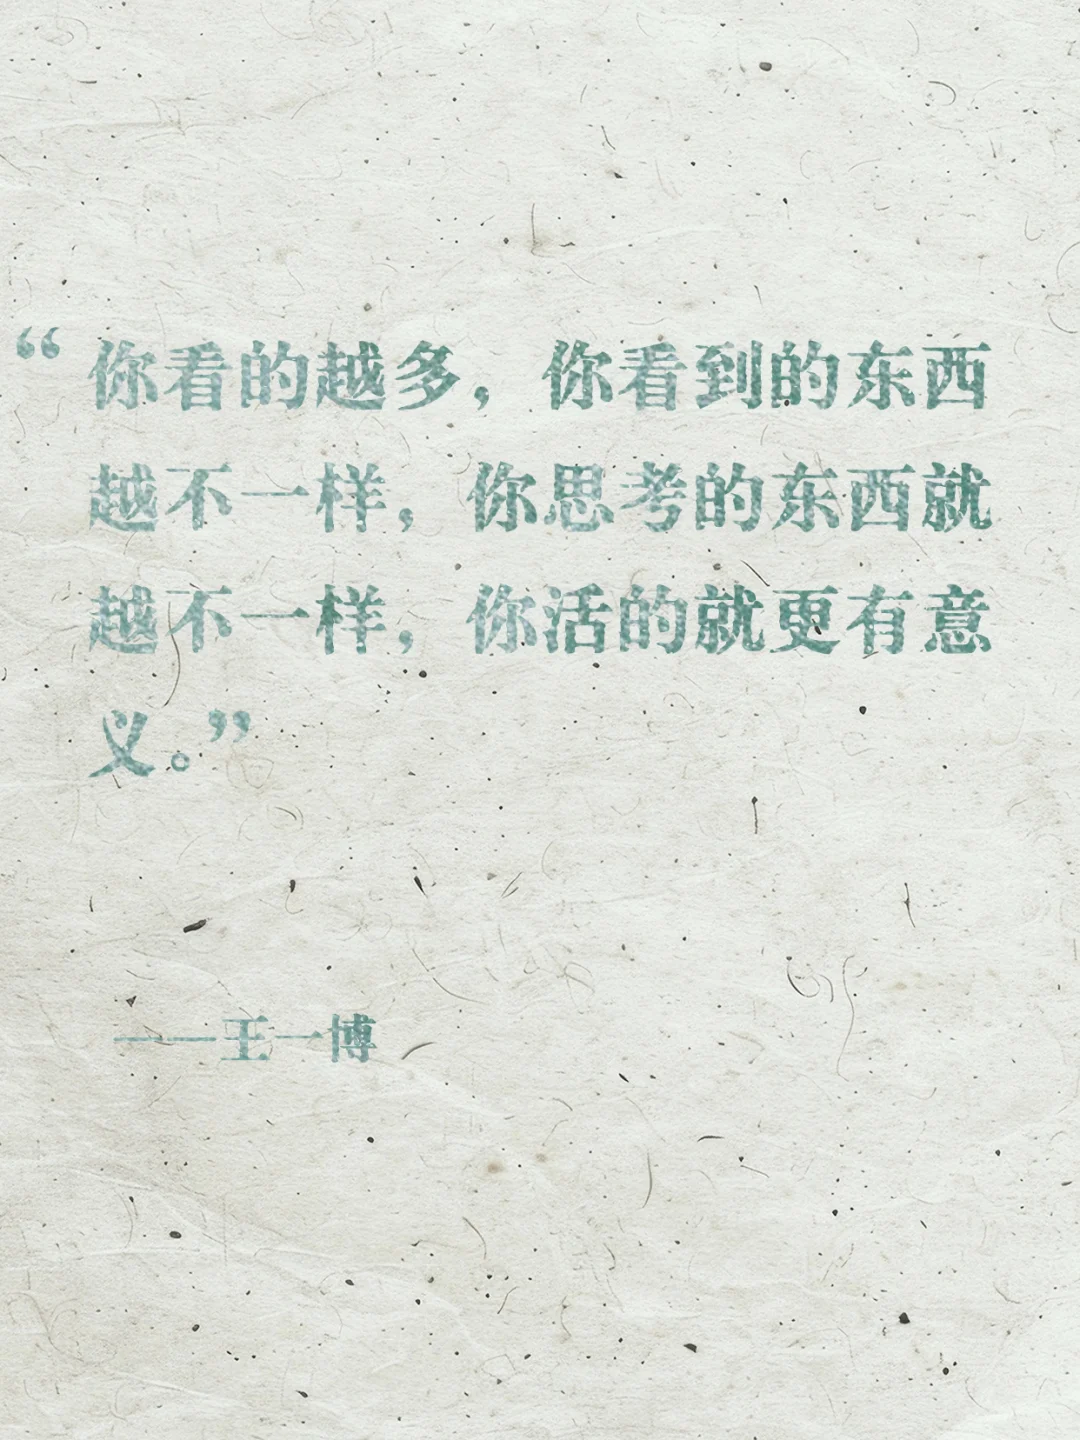 “你看的越多，你看到的东西
越不一样，你思考的东西就
越不一样，你活的就更有意
义。”
——王一博